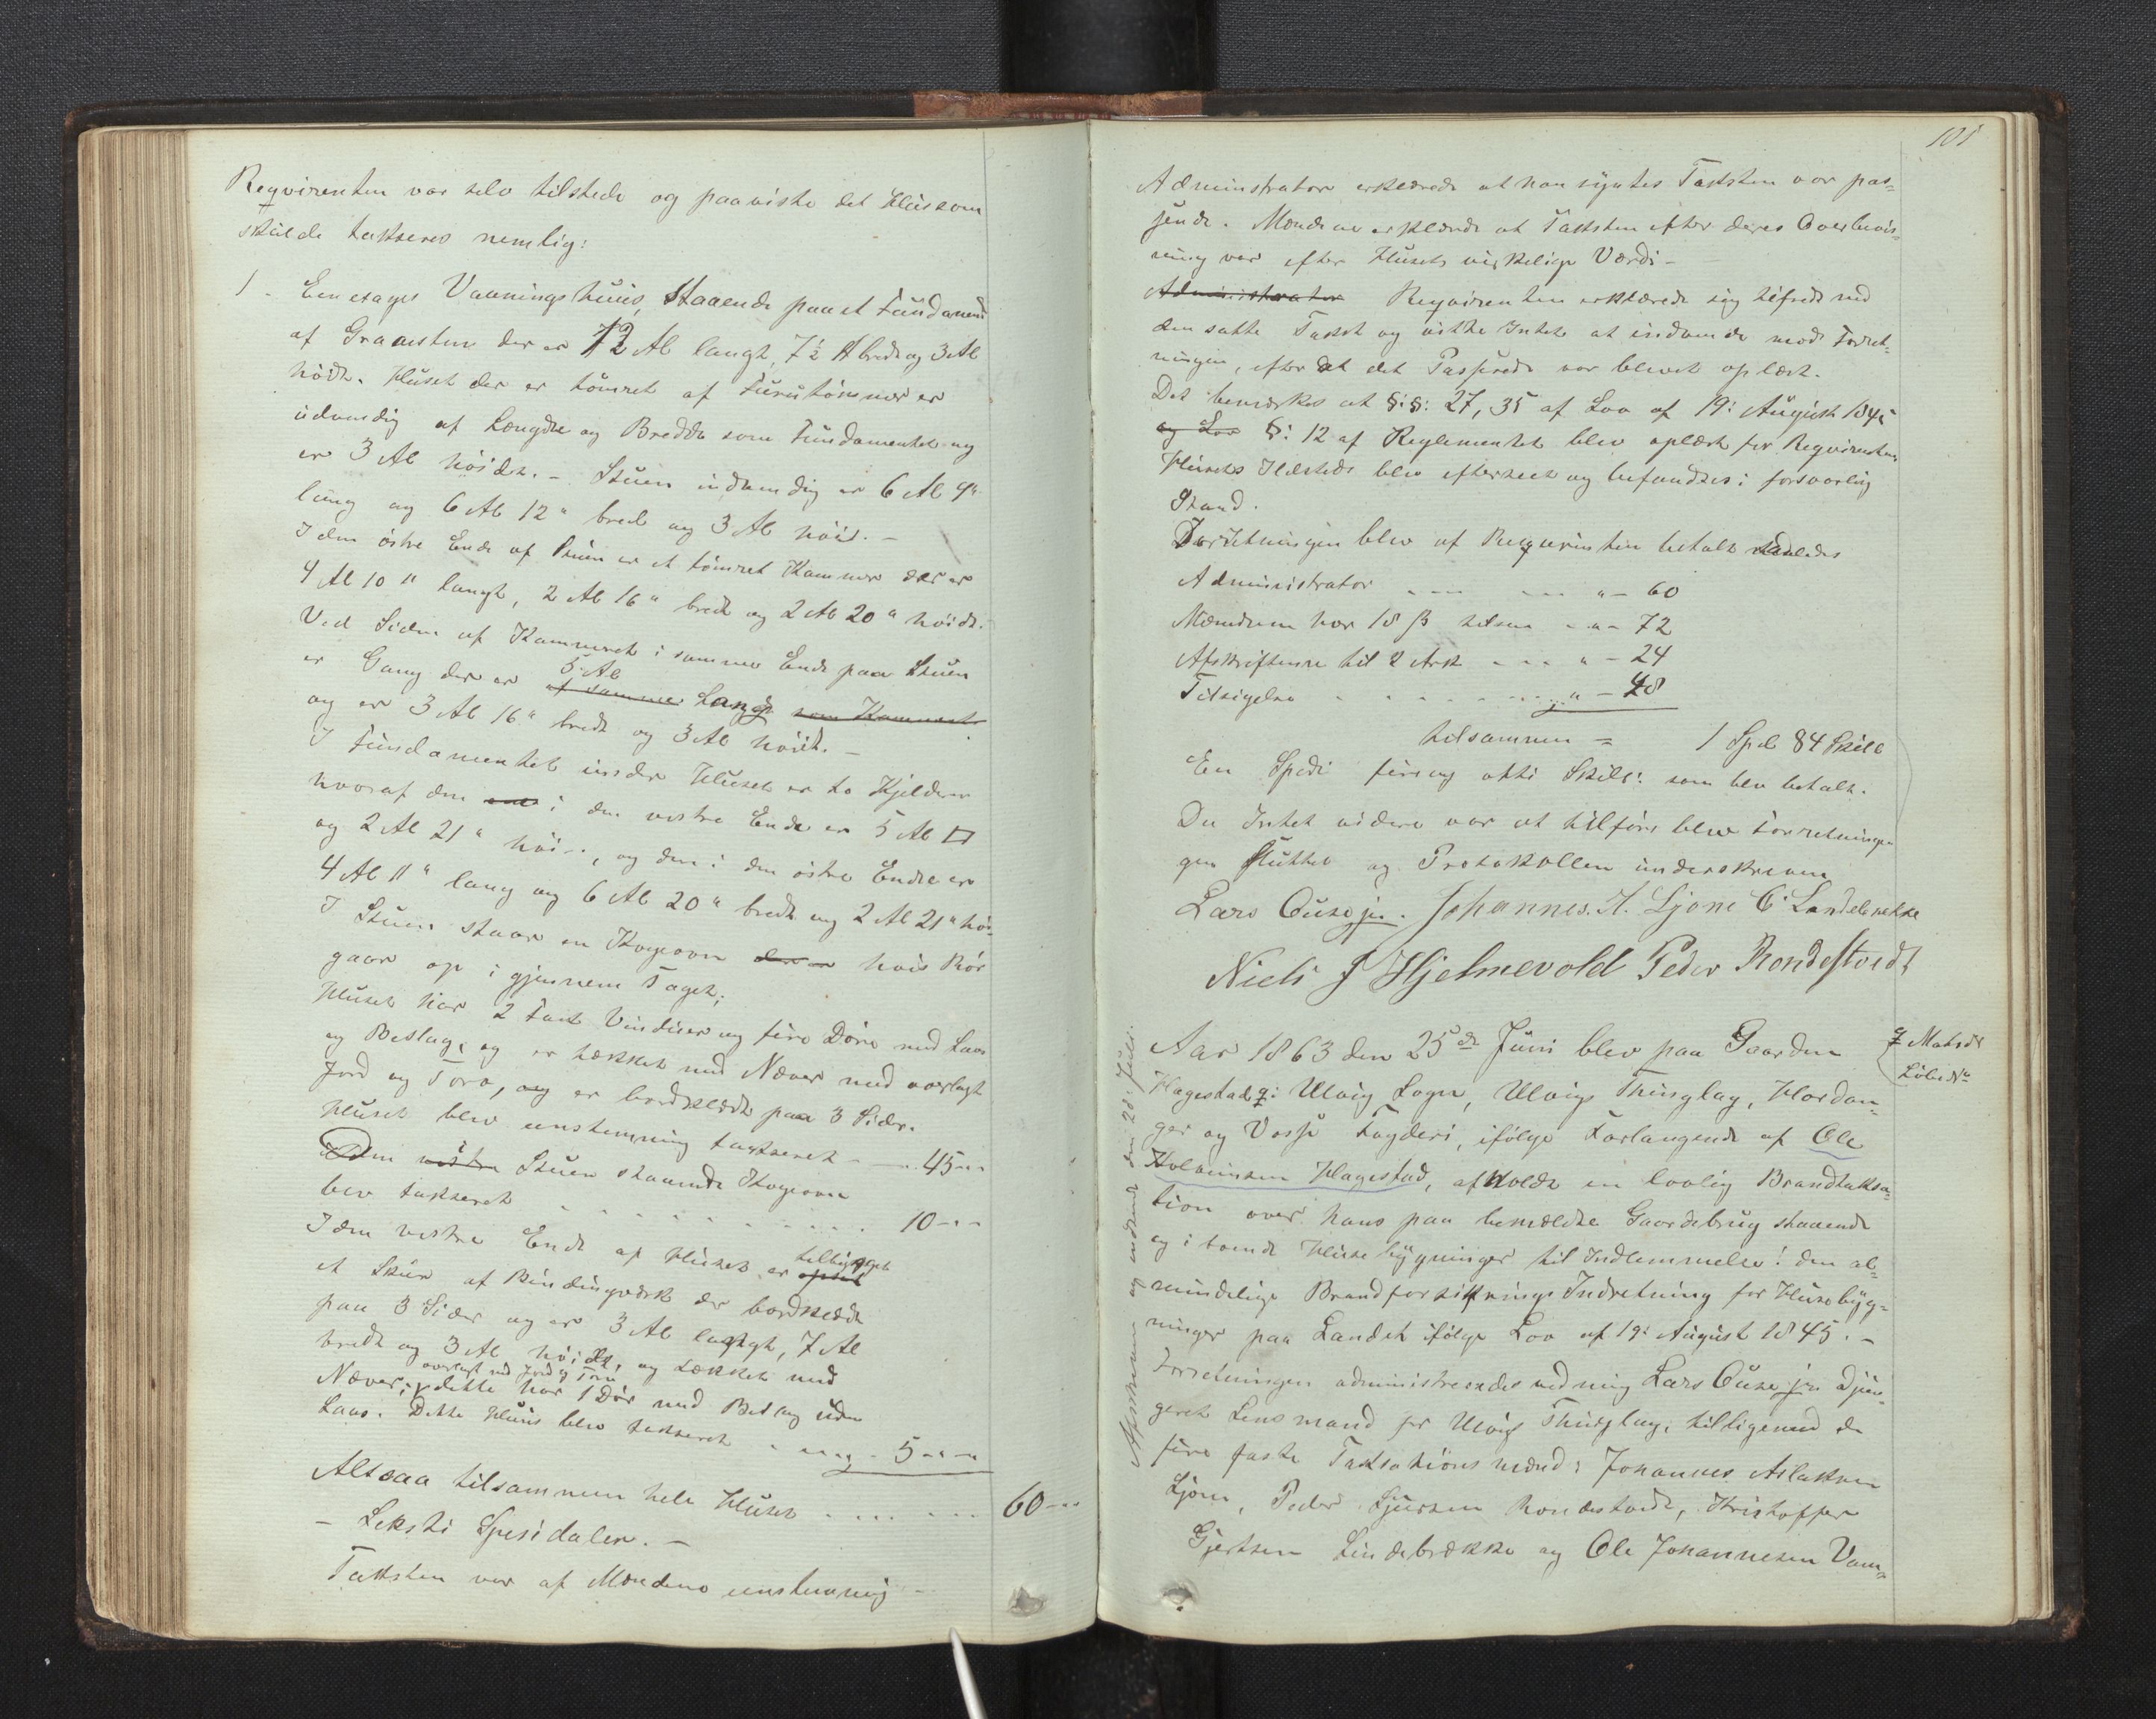 Reqvirenten var selv tilstede og paaviste det Huus som
skulde takseres nemlig:
1 - Een etages Vaaningshuus, staaende paa et Fundament
af Graasteen der er 12 Al langt, 7½ Al bredt og 3 Al
höidt. Huset der er tömret af Furutömmer er
udvendig af Længde og Bredde som Fundamentet og
er 3 Al höidt. - Stuen indvendig er 6 Al 9"
lang og 6 Al 12" bred og 3 Al höi. -
I den östre Ende af Stuen er et tömret Kammer der er
4 Al 10" langt, 2 Al 16" bredt og 2 Al 20" höidt.
Ved Siden af Kammeret i samme Ende paa Stuen
er Gang der er 5 Al af samme Lang som Kammeret
og er 3 Al 16" bredt og 3 Al höidt. -
I Fundamentet under Huset er to Kjeldere
hvoraf den i den vestre Ende er 5 Al □
og 2 Al 21" höi, og den i den östre Ende er
4 Al 11" lang og 6 Al 20" bredt og 2 Al 21" höi
I Stuen staar en Kogeovn der er hvis Rör
gaar op i gjennem Taget;
Huset har 2 Fast Vinduer og fire Döre med Laas
og Beslag, og er tækket med Næver med overlagt
Jord og Torv, og er bordklædt paa 3 Sider.
Huset blev enstemmig taxseret - - 45 - -
Den vestre Stuen staaende Kogeovn
blev takseret . . . . . . . . . 10 - - -
I den vestre Ende af Huset er tilbygget opsat
et Skur af Bindingværk der bordklædt
paa 3 Sider og er 3 Al langt, 7 Al
bredt og 3 Al höidt, og tækket med
Næver, overlagt med Jord og Torv dette har 1 Dör med Beslag uden
Laas. Dette Huus blev takseret - - - 5 - - -
Altsaa tilsammen hele Huset . . . . . . . 60 - - -
- Seksti Spesidaler. -
Taksten var af Mændene enstemmig -
101
Administrator erklærede at han syntes Taksten var pas-
sende. Mændene erklærede at Taksten efter deres Overbevis-
ning var efter Husets virkelige Værdi -
Administrator Reqvirenten erklærede sig tilfreds med
den satte Takst og vidste Intet at indvende mod Forret-
ningen, efter at det Passerede var blevet oplæst.
Det bemærkes at §:§: 27, 35 af Lov af 19: August 1845
og Lov §: 12 af Reglementet blev oplæst for Reqvirenten
Husets Ildsteder blev efterseet og befandtes i forsvarlig
Stand.
Forretningen blev af Reqvirenten betalt saaledes
Administrator - - - - - - " - 60
Mændene hver 18 ß tilsm - - " - 72
Afskrifterne til 2 Ark - - - " - 24
Tilsigelse - - - - - - - " - 48
tilsammen = 1 Spd 84 Skill
En Spedl fire og otti Skill: som blev betalt.
Da Intet videre var at tilföre blev Forretnin-
gen sluttet og Protokollen underskreven
Lars Ouse jr. Johannes. A. Ljone C Landebrekke
Niels J Hjelmevold Peder Rondestvedt
Aar 1863 den 25de Juni blev paa Gaarden
Hagestad ⚥: Ulvig Sogn, Ulvigs Thinglag, Hardan-
ger og Vosse Fogderi, ifölge Forlangende af Ole
Holvinsen Hagestad, afholdt en lovlig Brandtaksa-
tion over hans paa bemeldte Gaardebrug staaende
og i bemeldte Huse bygninger til Indlemmelse i den al-
mindelige Brandforsikrings Indretning for Husebyg-
ninger paa Landet ifölge Lov af 19: August 1845. -
Forretningen administreredes ved mig Lars Ouse jr.
Lensmand for Ulvigs Thinglag, tilligemed de
fire faste Taksationsmænd: Johannes Aslaksen
Ljone, Peder Sjursen Rondestvedt, Kristoffer
Gjertsen Lindebrække og Ole Johannesen Vam-
⚥ Matr No
Löbe No
Afskreven og udsendt den 28: Juli.